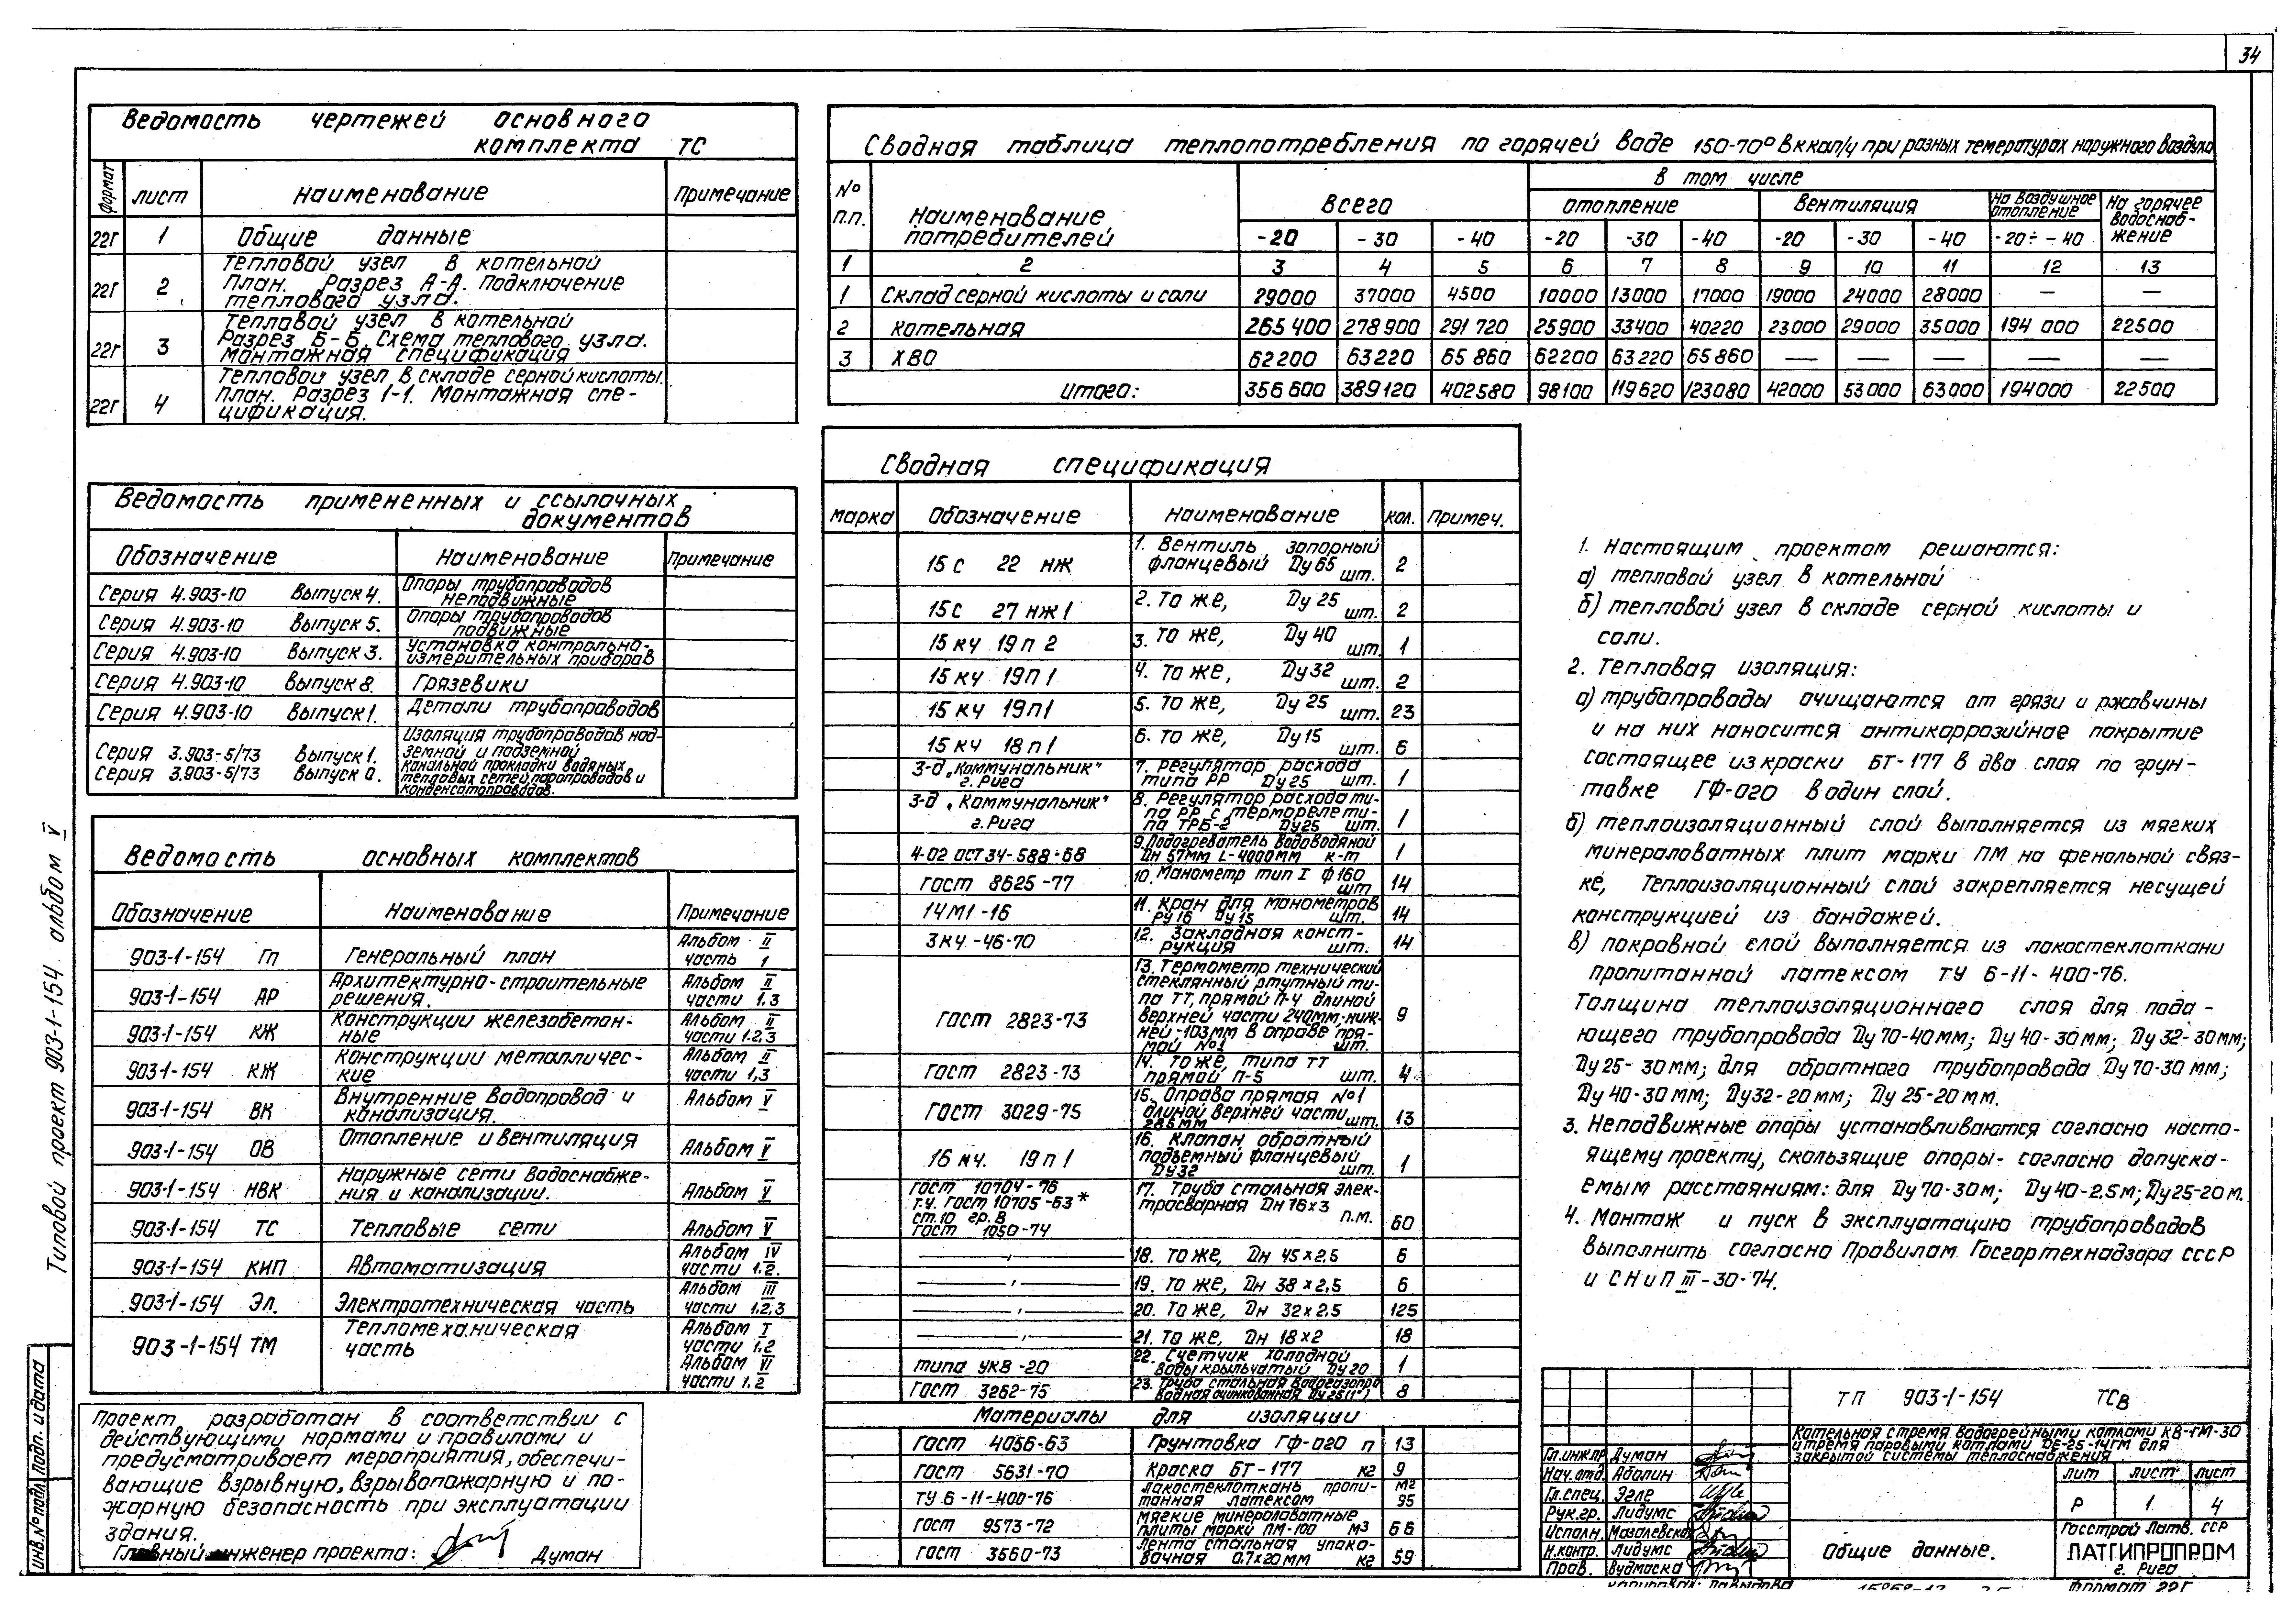 34
Типовой проект 903-1-154 альбом V
Инв.№подл. Подп. и дата
Ведомость чертежей основного
комплекта ТС
формат лист Наименование Примечание
22г 1 Общие данные
22г 2 Тепловой узел в котельной
План. Разрез А-А. Подключение
теплового узла.
22г 3 Тепловой узел в котельной
Разрез Б-Б. Схема теплового узла.
Монтажная спецификация
22г 4 Тепловой узел в складе серной кислоты.
План. Разрез 1-1. Монтажная спе-
цификация.
Ведомость примененных и ссылочных
документов
Обозначение Наименование Примечание
Серия 4.903-10 Выпуск 4. Опоры трубопроводов
неподвижные
Серия 4.903-10 Выпуск 5. Опоры трубопроводов
подвижные
Серия 4.903-10 Выпуск 3. Установка контрольно-
измерительных приборов
Серия 4.903-10 Выпуск 8. Грязевики
Серия 4.903-10 Выпуск 1. Детали трубопроводов
Серия 3.903-5/73 Выпуск 1.
Серия 3.903-5/73 Выпуск 0.
Изоляция трубопроводов над-
земной и подземной
канальной прокладки водяных
тепловых сетей, паропроводов и
конденсатопроводов.
Ведомость основных комплектов
Обозначение Наименование Примечание
903-1-154 ГП Генеральный план Альбом II
часть 1
903-1-154 АР Архитектурно-строительные
решения. Альбом II
части 1.3
903-1-154 КЖ Конструкции железобетон-
ные Альбом II
части 1.2,3
903-1-154 КЖ Конструкции металличес-
кие Альбом II
части 1,3
903-1-154 ВК Внутренние водопровод и
канализация. Альбом V
903-1-154 ОВ Отопление и вентиляция Альбом V
903-1-154 НВК Наружные сети водоснабже-
ния и канализации. Альбом V
903-1-154 ТС Тепловые сети Альбом V
903-1-154 КИП Автоматизация Альбом IV
части 1.2.
903-1-154 Эл. Электротехническая часть Альбом III
части 1.2,3
903-1-154 ТМ Тепломеханическая
часть Альбом I
части 1.2
Альбом VI
части 1.2
Проект разработан в соответствии с
действующими нормами и правилами и
предусматривает мероприятия, обеспечи-
вающие взрывную, взрывопожарную и по-
жарную безопасность при эксплуатации
здания.
Главный инженер проекта: Думан
Сводная таблица теплопотребления по горячей воде 150-70° в ккал/ч при разных темературах наружного воздуха
№
п.п. Наименование
потребителей Всего в том числе
отопление Вентиляция На воздушное
отопление На горячее
водоснаб-
жение
-20 -30 -40 -20 -30 -40 -20 -30 -40 -20÷-40
1 2 3 4 5 6 7 8 9 10 11 12 13
1 Склад серной кислоты и соли 29000 37000 4500 10000 13000 17000 19000 24000 28000 — —
2 Котельная 265400 278900 291720 25900 33400 40220 23000 29000 35000 194 000 22500
3 ХВО 62200 63220 65860 62200 63220 65860 — — — — —
Итого: 356600 389120 402580 98100 119620 123080 42000 53000 63000 194000 22500
Сводная спецификация
Марка Обозначение Наименование Кол. Примеч.
15 с 22 нж 1. Вентиль запорный
фланцевый Ду 65 шт. 2
15с 27 нж 1 2. То же, Ду 25 шт. 2
15 кч 19 п 2 3. То же, Ду 40 шт. 1
15 кч 19п 1 4. То же, Ду 32 шт. 2
15 кч 19п1 5. То же, Ду 25 шт. 23
15 кч 18 п1 6. То же, Ду 15 шт. 6
З-д „Коммунальник"
г. Рига 7. Регулятор расхода
типа РР Ду 25 шт. 1
З-д „Коммунальник"
г. Рига 8. Регулятор расхода ти-
па РР с термореле ти-
па ТРБ-2 Ду25 шт. 1
4-02 ОСТ 34-588-68 9. Подогреватель водоводяной
Дн 57мм L-4000мм к-т 1
ГОСТ 8625-77 10. Манометр тип I ф160
шт 14
14М1-16 11. Кран для манометров
Ру16 Ду15 шт. 14
ЗКЧ-46-70 12. Закладная конст-
рукция шт. 14
ГОСТ 2823-73 13. Термометр технический
стеклянный ртутный ти-
па ТТ, прямой П-4 длиной
верхней части 240мм, ниж-
ней-103мм в оправе пря-
мой №1 шт. 9
ГОСТ 2823-73 14. То же, типа ТТ
прямой П-5 шт. 4
ГОСТ 3029-75 15. Оправа прямая №1
длиной верхней части
285мм шт. 13
16 кч. 19 п 1 16. Клапан обратный
подъемный фланцевый
Ду32 шт. 1
ГОСТ 10704-76
Т.У. ГОСТ 10705-63*
ст.10 гр. В
ГОСТ 1050-74 17. Труба стальная элек-
тросварная Дн 76х3
п.м. 60
—„— 18. То же, Дн 45х2.5 6
—„— 19. То же, Дн 38х2,5 6
—„— 20. То же, Дн 32х2,5 125
—„— 21. То же, Дн 18х2 18
типа УКВ-20 22. Счетчик холодной
воды крыльчатый Ду 20 1
ГОСТ 3262-75 23. Труба стальная водогазопро
водная оцинкованная Ду 25(1") 8
Материалы для изоляции
ГОСТ 4056-63 Грунтовка ГФ-020 п 13
ГОСТ 5631-70 Краска БТ-177 кг 9
ТУ 6-11-400-76 Лакостеклоткань пропи-
танная латексом м2 95
ГОСТ 9573-72 Мягкие минераловатные
плиты марки ПМ-100 м3 66
ГОСТ 3560-73 Лента стальная упако-
вочная 0.7х20мм кг 59
1. Настоящим проектом решаются:
а) тепловой узел в котельной
б) тепловой узел в складе серной кислоты и
соли.
2. Тепловая изоляция:
а) трубопроводы очищаются от грязи и ржавчины
и на них наносится антикоррозийное покрытие
состоящее из краски БТ-177 в два слоя по грун-
товке ГФ-020 в один слой.
б) теплоизоляционный слой выполняется из мягких
минераловатных плит марки ПМ на фенольной связ-
ке, Теплоизоляционный слой закрепляется несущей
конструкцией из бандажей.
в) покровной слой выполняется из лакостеклоткани
пропитанной латексом ТУ 6-11-400-76.
Толщина теплоизоляционного слоя для пода-
ющего трубопровода Ду 70-40мм; Ду 40-30мм; Ду 32-30мм;
Ду 25-30мм; для обратного трубопровода Ду 70-30 мм;
Ду 40-30 мм; Ду32-20мм; Ду 25-20 мм.
3. Неподвижные опоры устанавливаются согласно насто-
ящему проекту, скользящие опоры- согласно допуска-
емым расстояниям: для Ду 70-30м; Ду 40-2.5м; Ду25-20м.
4. Монтаж и пуск в эксплуатацию трубопроводов
выполнить согласно Правилам Госгортехнадзора СССР
и СНиП III-30-74.
ТП 903-1-154 ТСв
Котельная с тремя водогрейными котлами КВ-ГМ-30
и тремя паровыми котлами ДЕ-25-14ГМ для
закрытой системы теплоснабжения
Гл.инж.пр Думан
Нач.отд. Адолин
Гл.спец. Эгле
Рук.гр. Лидумс
Исполн.
Н.контр. Лидумс
Пров. Вудмаска
лит лист лист
Р 1 4
Общие данные.
Госстрой Латв. ССР
ЛАТГИПРОПРОМ
г. Рига
Формат 22Г